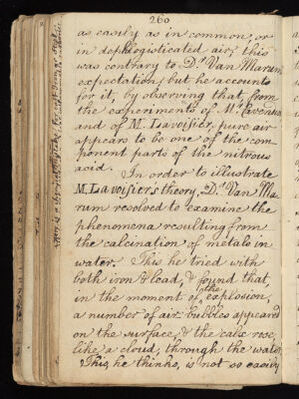 260
as easily as in common, or
in dephlogisticated air; this
was contrary to Dr. Van Marum
expectation, but he accounts
for it, by observing that, from
the experiments of Mr. Cavendish
and of M. Lavoisier, pure air
appears to be one of the com-
ponent parts of the nitrous
acid.
In order to illustrate
M. Lavoisier's theory, Dr. Van Ma-
rum resolved to examine the
phenomena resulting from
the calcination of metals in
water. This he tried with
both iron & lead, & found that,
in the moment of the explosion,
a number of air bubbles appeared
on the surface, & the calx rose,
like a cloud, through the water.
This, he thinks, is not so easily